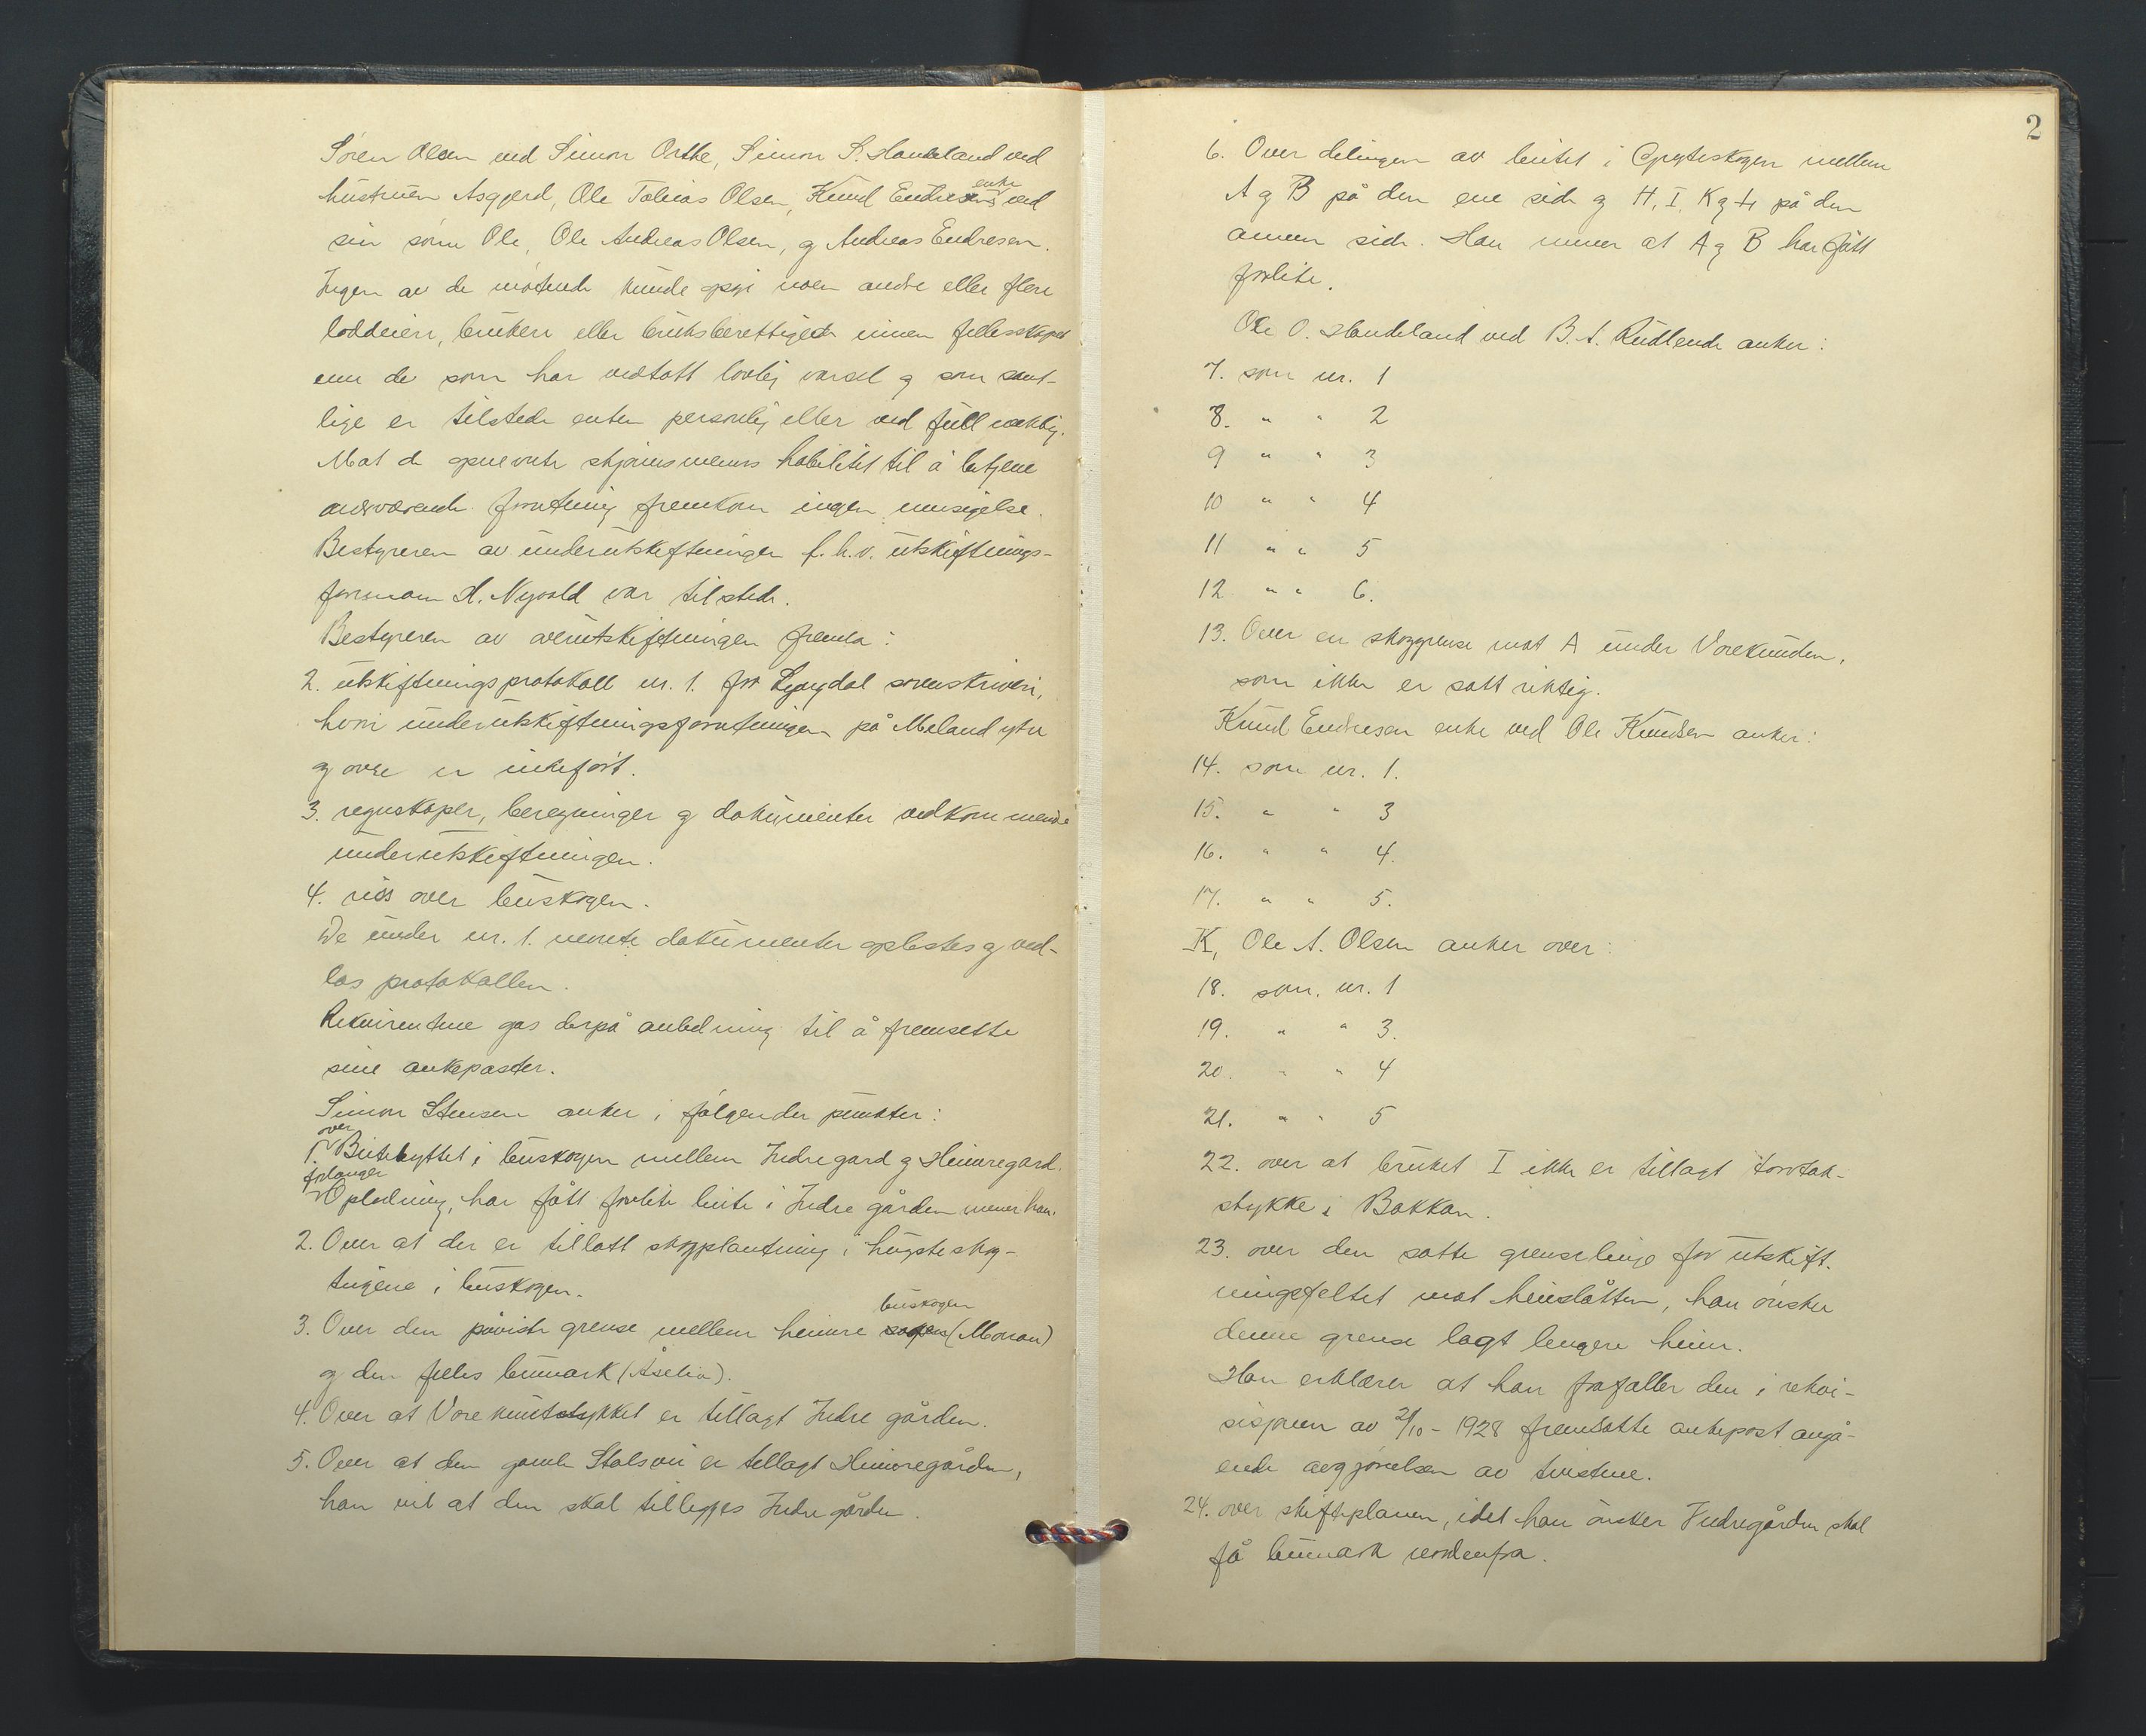 Søren Olsen ved Simon Osthe, Simon S. Haudeland ved
hustruen Asgjerd, Ole Tobias Olsen, Knud Endresens enke ved
sin sønn Ole, Ole Andreas Olsen, og Andreas Endresen.
Ingen av de møtende kunde opgi noen andre eller flere
loddeiere, brukere eller bruksberettigede innen fellesskapet
enn de som har vedtatt lovlig varsel og som samt-
lige er tilstede enten personlig eller ved fullmektig.
Mot de opnevnte skjønnsmenns habilitet til å betjene
nærværende forretning fremkom ingen innsigelse.
Bestyreren av underutskiftningen f.h.v. utskiftnings-
formann H. Nyvold var tilstede.
Bestyreren av overutskiftningen fremla:
2. utskiftningsprotokoll nr. 1. for Lyngdal sorenskriveri,
hvori underutskiftningsforretningen på Meland ytre
og øvre er innført.
3. regnskaper, beregninger og dokumenter vedkommende
underutskiftningen.
4. riss over buskogen.
De under nr. 1. nevnte dokumenter oplestes og ved-
las protokollen.
Rekvirentene gas derpå anledning til å fremsette
sine ankeposter.
Simon Stensen anker i følgende punkter:
1. over Beitebyttet i buskogen mellem Indregard og Heimregard.
forlanger Oplodning, har fått forlite beite i Indre gården mener han.
2. Over at der er tillatt skogplantning i hugsteskog-
teigene i buskogen.
3. Over den påviste grense mellem heimre buskogen (Monan)
og den felles bumark (Åselia).
4. Over at Vorekunstykket er tillagt Indre gården.
5. Over at den gamle Stølsvei er tillagt Heimregården,
han vil at den skal tillegges Indre gården.
2
6. Over delingen av beitet i Gryteskogen mellem
A og B på den ene side og H, I, K og L på den
annen side. Han mener at A og B har fått
forlite.
Ole O. Haudeland ved B. A. Rudlende anker:
7. som nr. 1
8. " " 2
9 " " 3
10 " " 4
11 " " 5
12 " " 6.
13. Over en skoggrense mot A under Vorekunden,
som ikke er satt riktig.
Knud Endresen enke ved Ole Knudsen anker:
14. som nr. 1.
15. " " 3
16. " " 4.
17. " " 5.
K, Ole A. Olsen anker over:
18. som. nr. 1
19. " " 3.
20. " " 4
21. " " 5
22. over at bruket I ikke er tillagt torvtak-
stykke i Bakkan.
23. over den satte grenselinje for utskift.
ningsfeltet mot heiеslåtten, han ønsker
denne grense lagt lengere heim.
Han erklærer at han frafaller den i rekvi-
sisjonen av 21/10 - 1928 fremsatte ankepost angå-
ende avgjørelsen av tvistene.
24. over skifteplanen, idet han ønsker Indregården skal
få bumark nordenfra.